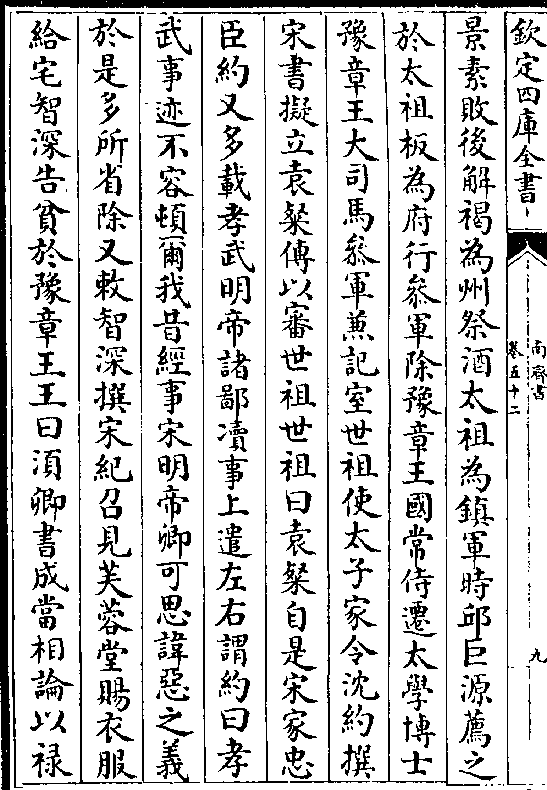 欽定四庫全書
南齊書
卷五十二
九
景素敗後解褐為州祭酒太祖為鎮軍時邱巨源薦之
於太祖板為府行叅軍除豫章王國常侍遷太學博士
豫章王大司馬叅軍兼記室世祖使太子家令沈約撰
宋書擬立袁粲傳以審世祖世祖曰袁粲自是宋家忠
臣約又多載孝武明帝諸鄙凟事上遣左右謂約曰孝
武事迹不容頓爾我昔經事宋明帝卿可思諱惡之義
於是多所省除又敕智深撰宋紀召見芙蓉堂賜衣服
給宅智深告貧於豫章王王曰須卿書成當相論以禄